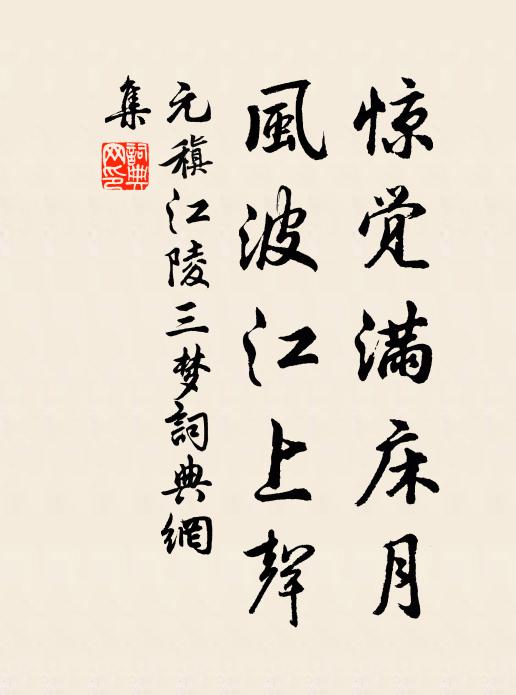 惊觉满床月
風波江上聲
元稹江陵三梦詞典網
集
詞典
网印